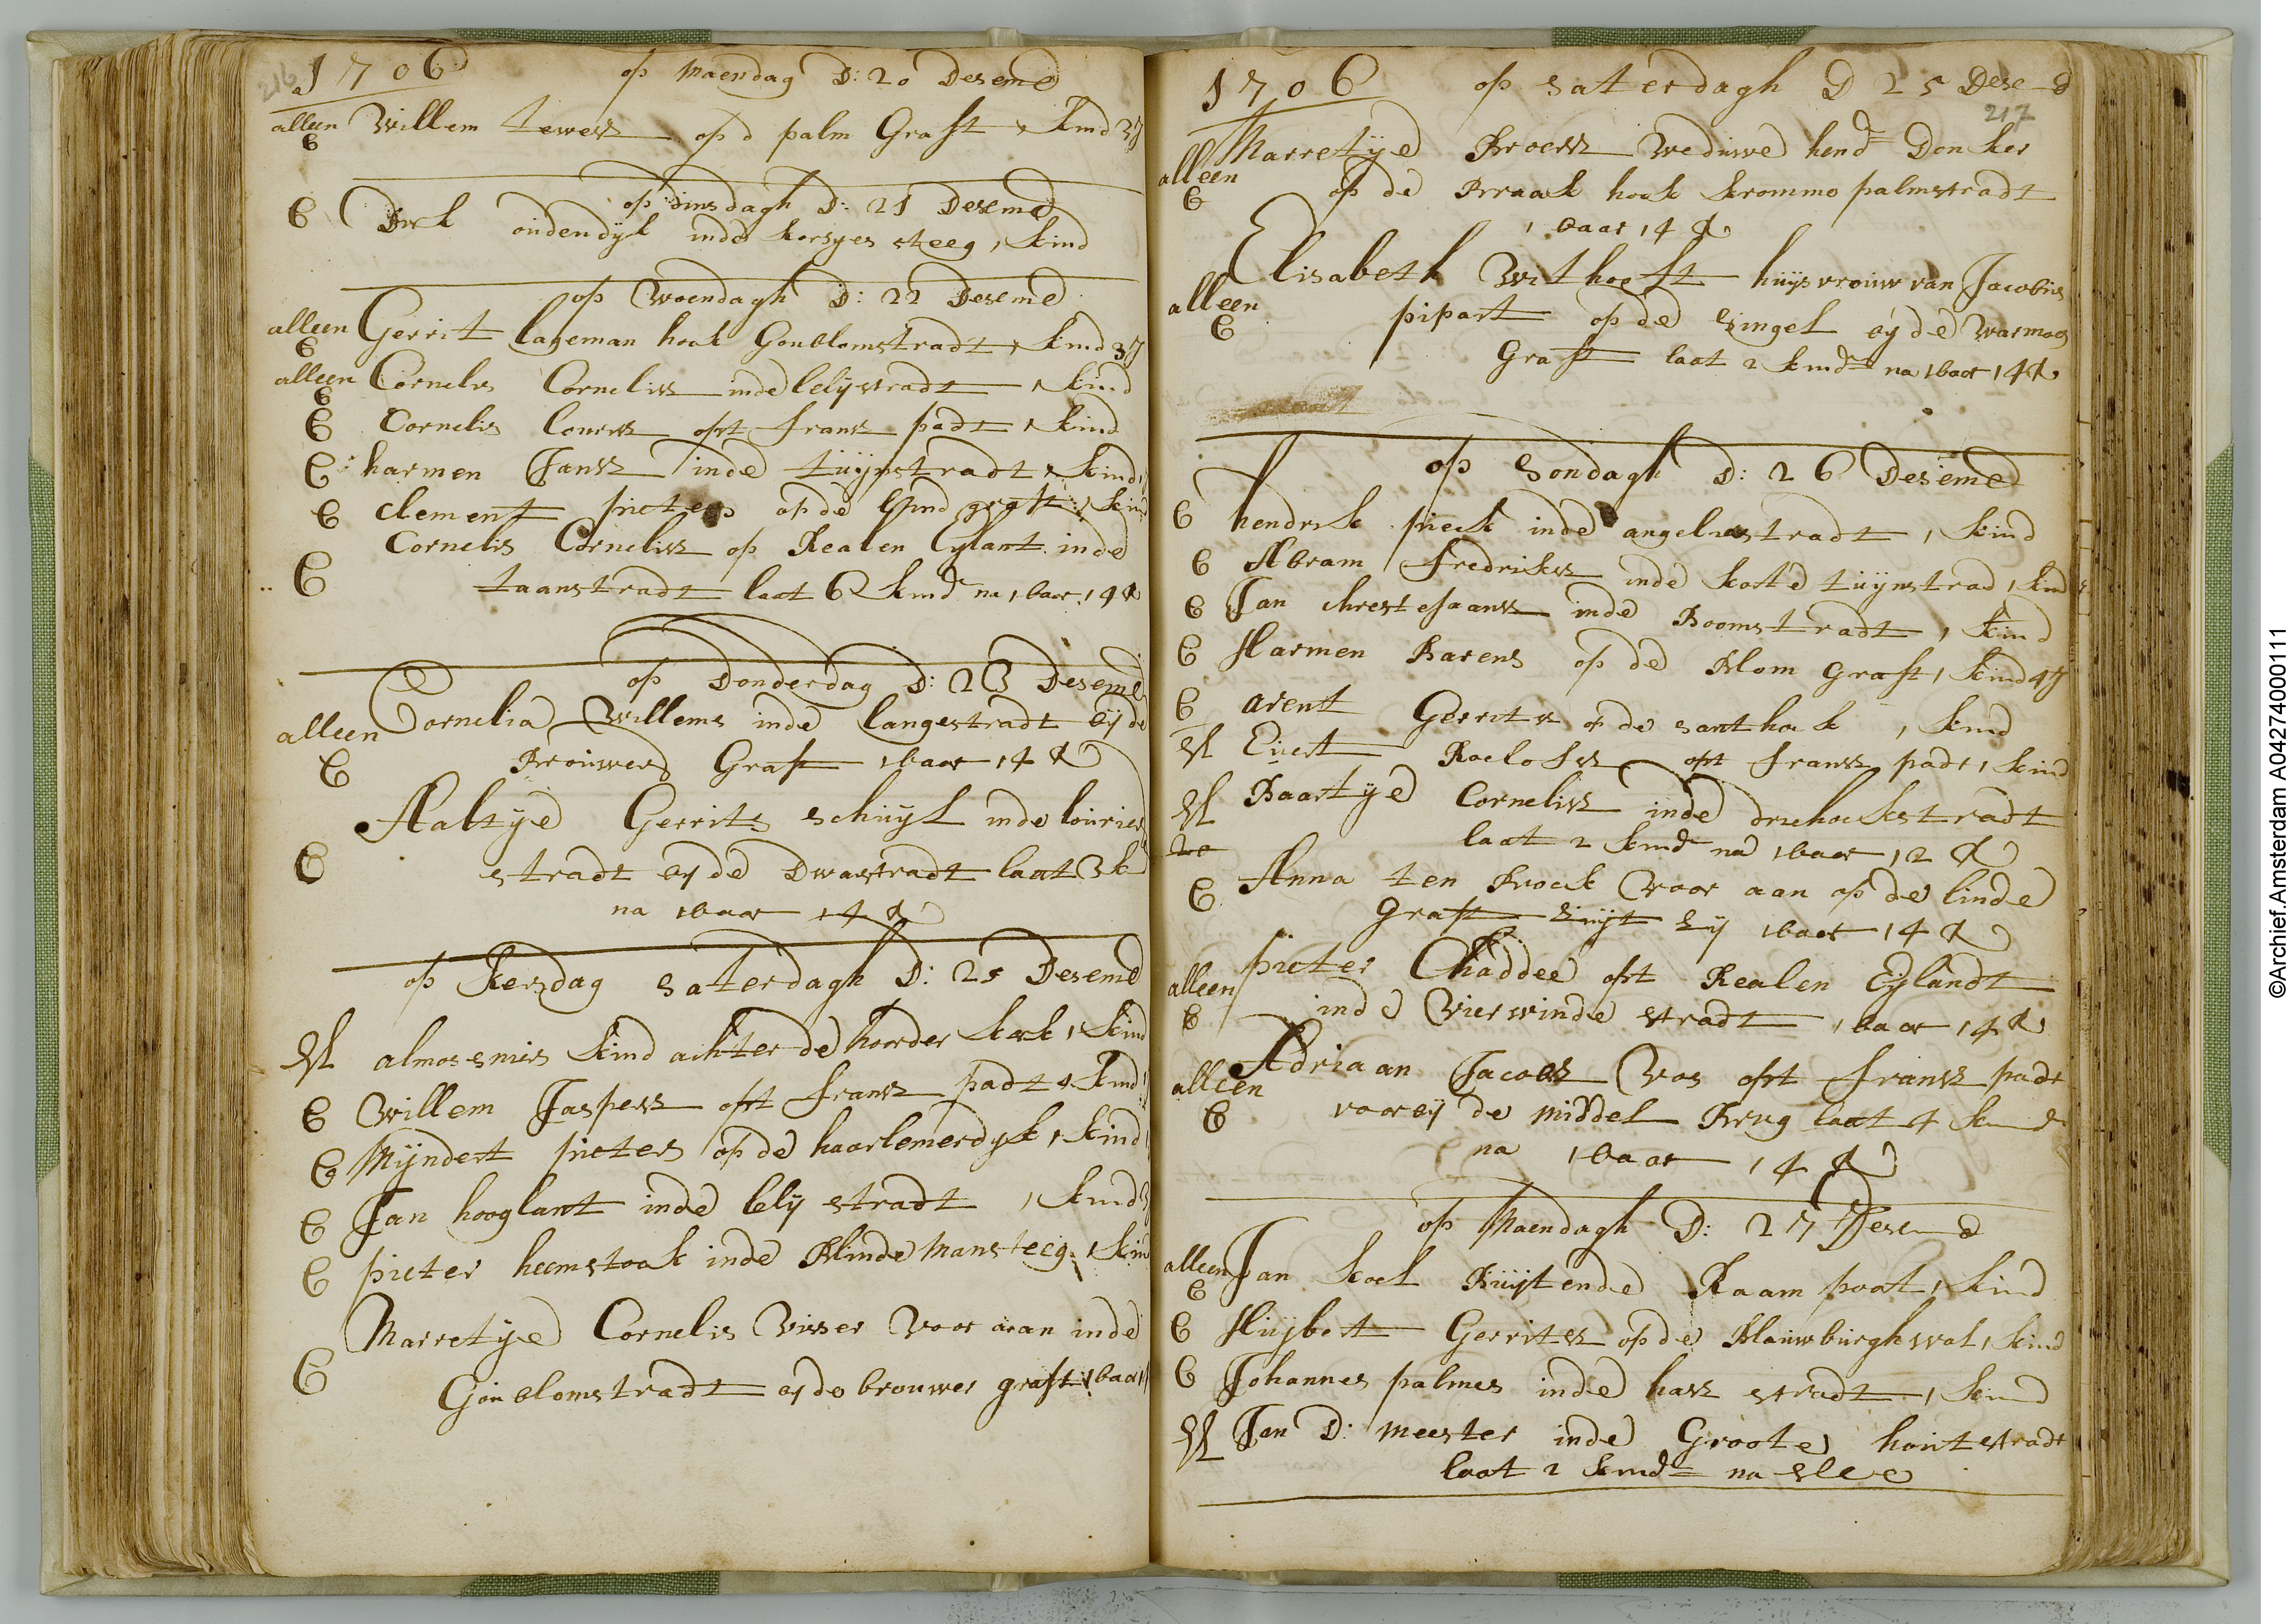 216 1706 op Maendag D: 20 Desemb
alleen Willem tewesz op d palm Graft 1 kind 3J
B
op dinsdagh D: 21 Desemb
B Dirk oudendijk inde korsyes steeg 1 kind
op Woendagh D: 22 Desemb
alleen Gerrit lageman hoek Goublomstradt 1 kind 3J
B
alleen Cornelis Cornelisz inde lelijstradt 1 kind
B
B Cornelis Louwsz opt fransz padt 1 kind
B harmen Jansz inde tuijnstradt 1 kind
B clement pieters op de lijnd graft 1 kin
Cornelis Cornelisz op Realen Eylant inde
B taanstradt laat 6 kind na 1 baar 14 R
op Donderdag D: 23 Desemb
alleen Cornelia Willems inde langestradt bij de
B Brouwers Graft 1 baar 14 R
Aaltye Gerrits schuijt inde louries
B stradt by de Dwarstradt laat 3 k
na 1 baar 14 R
op Kersdag saterdagh D: 25 Desemb
H almosenies kind achter de Noorder kerk 1 kind
B Willem Jaspersz opt fransz padt 1 kind
B Mijndert pieters op de haarlemerdyk 1 kind
B Jan hooglant inde lely stradt 1 kind 3
B pieter heemstook inde Blinde mansteeg 1 kin
Marretije Cornelis Visser Voor aan inde
B Goublomstradt by de brouwer graft 1 baar 1
1706 op saterdagh D 25 Desemb
217
Marretije Broersz Weduwe hend Donker
alleen
B op de Braak hoek krommo palmstradt
1 baar 14 R
Elisabeth Withooft huijsvrouw van Jacobus
alleen pipart op de singel bij de warmoes
B
Graft laat 2 kind na 1 baar 14 R
op Sondagh D: 26 Desemb
B hendrik pieck inde angelierstradt 1 kind
B Abram fredriksz inde korte tuijnstrad 1 kind
B Jan chrestejaansz inde Boomstradt 1 kind
B Harmen Barens op de Blom Graft 1 kind 4J
B arent Gerritsz o de santhoek 1 kind
H Evert Roelofsz opt fransz padt 1 kind
H Baartije Cornelisz inde driehoekstradt
laat 2 kind na 1 baar 12 R
B Anna ten Broeck Voor aan op de linde
Graft zuijt zy 1 baar 14 R
alleen pieter Chaddee opt Realen Eijlandt
B inde Vierwinde stradt 1 baar 14 R
Adriaan Jacobsz Vos opt fransz padt
alleen
B voor bij de middel Brug laat 4 kind
na 1 baar 14 R
op Maendagh D: 27 Desemb
alleen Jan koek Buijtende Raampoort 1 kind
B
B Huijbert Gerritsz op de Blauwburghwal 1 kind
B Johannes palmes inde hasz stradt 1 kind
H Jan D: meester inde Groote houtestradt
laat 2 kind na slee
©Archief.Amsterdam A04274000111